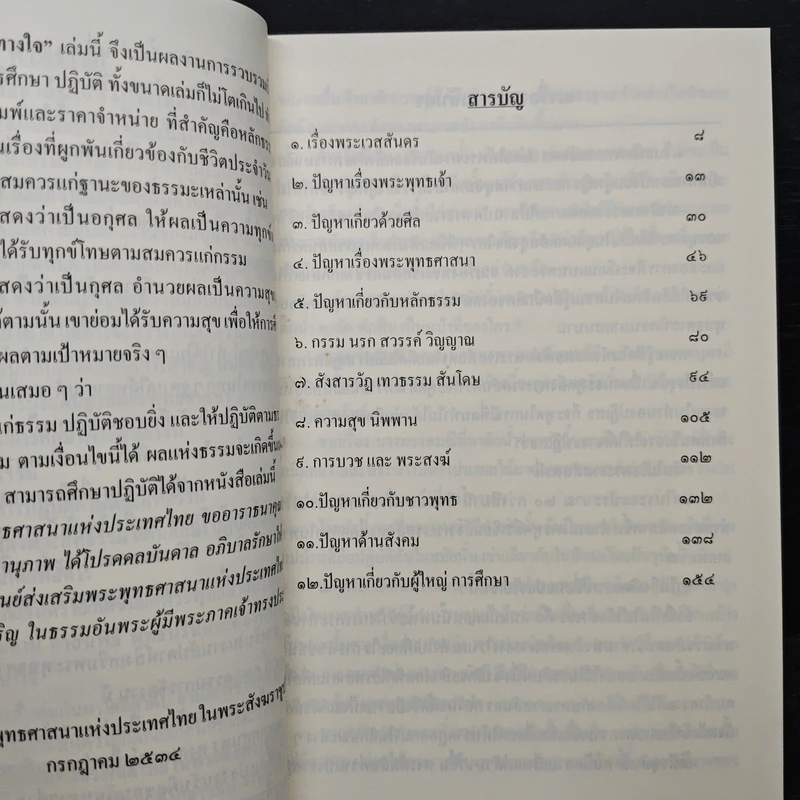 ทางใจ” เล่มนี้ จึงเป็นผลงานการรวบรวม
ศึกษา ปฏิบัติ ทั้งขนาดเล่มก็ไม่โตเกินไป
พิมพ์และราคาจำหน่าย ที่สำคัญคือหลักธรรม
เรื่องที่ผูกพันเกี่ยวข้องกับชีวิตประจำวัน
สมควรแก่ฐานะของธรรมะเหล่านั้น เช่น
แสดงว่าเป็นอกุศล ให้ผลเป็นความทุกข์
ได้รับทุกข์โทษตามสมควรแก่กรรม
แสดงว่าเป็นกุศล อำนวยผลเป็นความสุข
ตามนั้น เขาย่อมได้รับความสุข เพื่อให้การ
ผลตามเป้าหมายจริง ๆ
นเสมอ ๆ ว่า
แก่ธรรม ปฏิบัติชอบยิ่ง และให้ปฏิบัติตาม
ตามเงื่อนไขนี้ได้ ผลแห่งธรรมจะเกิดขึ้น
สามารถศึกษาปฏิบัติได้จากหนังสือเล่มนี้
พุทธศาสนาแห่งประเทศไทย ขออาราธนาคุณ
านุภาพ ได้โปรดดลบันดาล อภิบาลรักษา
ศูนย์ส่งเสริมพระพุทธศาสนาแห่งประเทศไทย
เจริญ ในธรรมอันพระผู้มีพระภาคเจ้าทรง
พุทธศาสนาแห่งประเทศไทย ในพระสังฆรา
กรกฎาคม ๒๕๓๔
สารบัญ
๑. เรื่องพระเวสสันดร ๘
๒. ปัญหาเรื่องพระพุทธเจ้า ๑๓
๓. ปัญหาเกี่ยวด้วยศีล ๓๐
๔. ปัญหาเรื่องพระพุทธศาสนา ๔๖
๕. ปัญหาเกี่ยวกับหลักธรรม ๖๙
๖. กรรม นรก สวรรค์ วิญญาณ ๘๐
๗. สังสารวัฏ เทวธรรม สันโดษ ๙๔
๘. ความสุข นิพพาน ๑๐๕
๙. การบวช และ พระสงฆ์ ๑๑๒
๑๐.ปัญหาเกี่ยวกับชาวพุทธ ๑๓๒
๑๑.ปัญหาด้านสังคม ๑๓๘
๑๒.ปัญหาเกี่ยวกับผู้ใหญ่ การศึกษา ๑๕๔